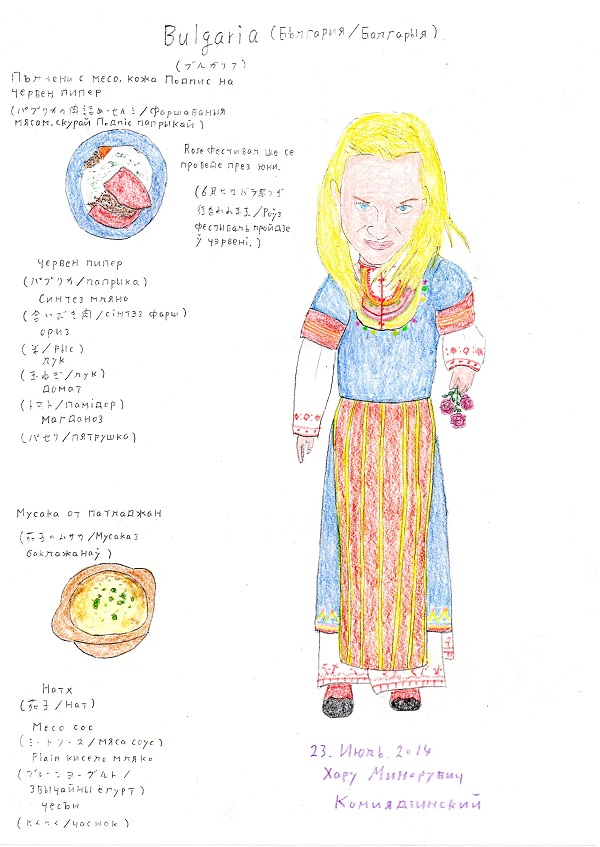 Bulgaria (България/Балгарыя)
(ブルガリア)
Пълнени с месо, кожа Подпис на
червен пипер
(パプリカの肉詰め・セルミ/фаршаваныя
мясам, скурай Подпіс папрыкай)
Rose фестивал ще се
проведе през юни.
(6月にはバラ祭りが
行われます/Роўз
фестываль пройдзе
ў чэрвені.)
червен пипер
(パプリカ/папрыка)
Синтез мляно
(合いびき肉/сінтэз фарш)
ориз
(米/рыс)
лук
(玉ねぎ/лук)
домат
(トマト/памідор)
магданоз
(パセリ/пятрушка)
Мусака от патладжан
(茄子のムサカ/Мусака з
баклажанаў)
Натх
(茄子/Нат)
Месо сос
(ミートソース/мяса соус)
Plain кисело мляко
(プレーンヨーグルト/
звычайны ёгурт)
чесън
(にんにく/часнок)
23. Июль. 2014
Хару Минорувич
Комиядзинский